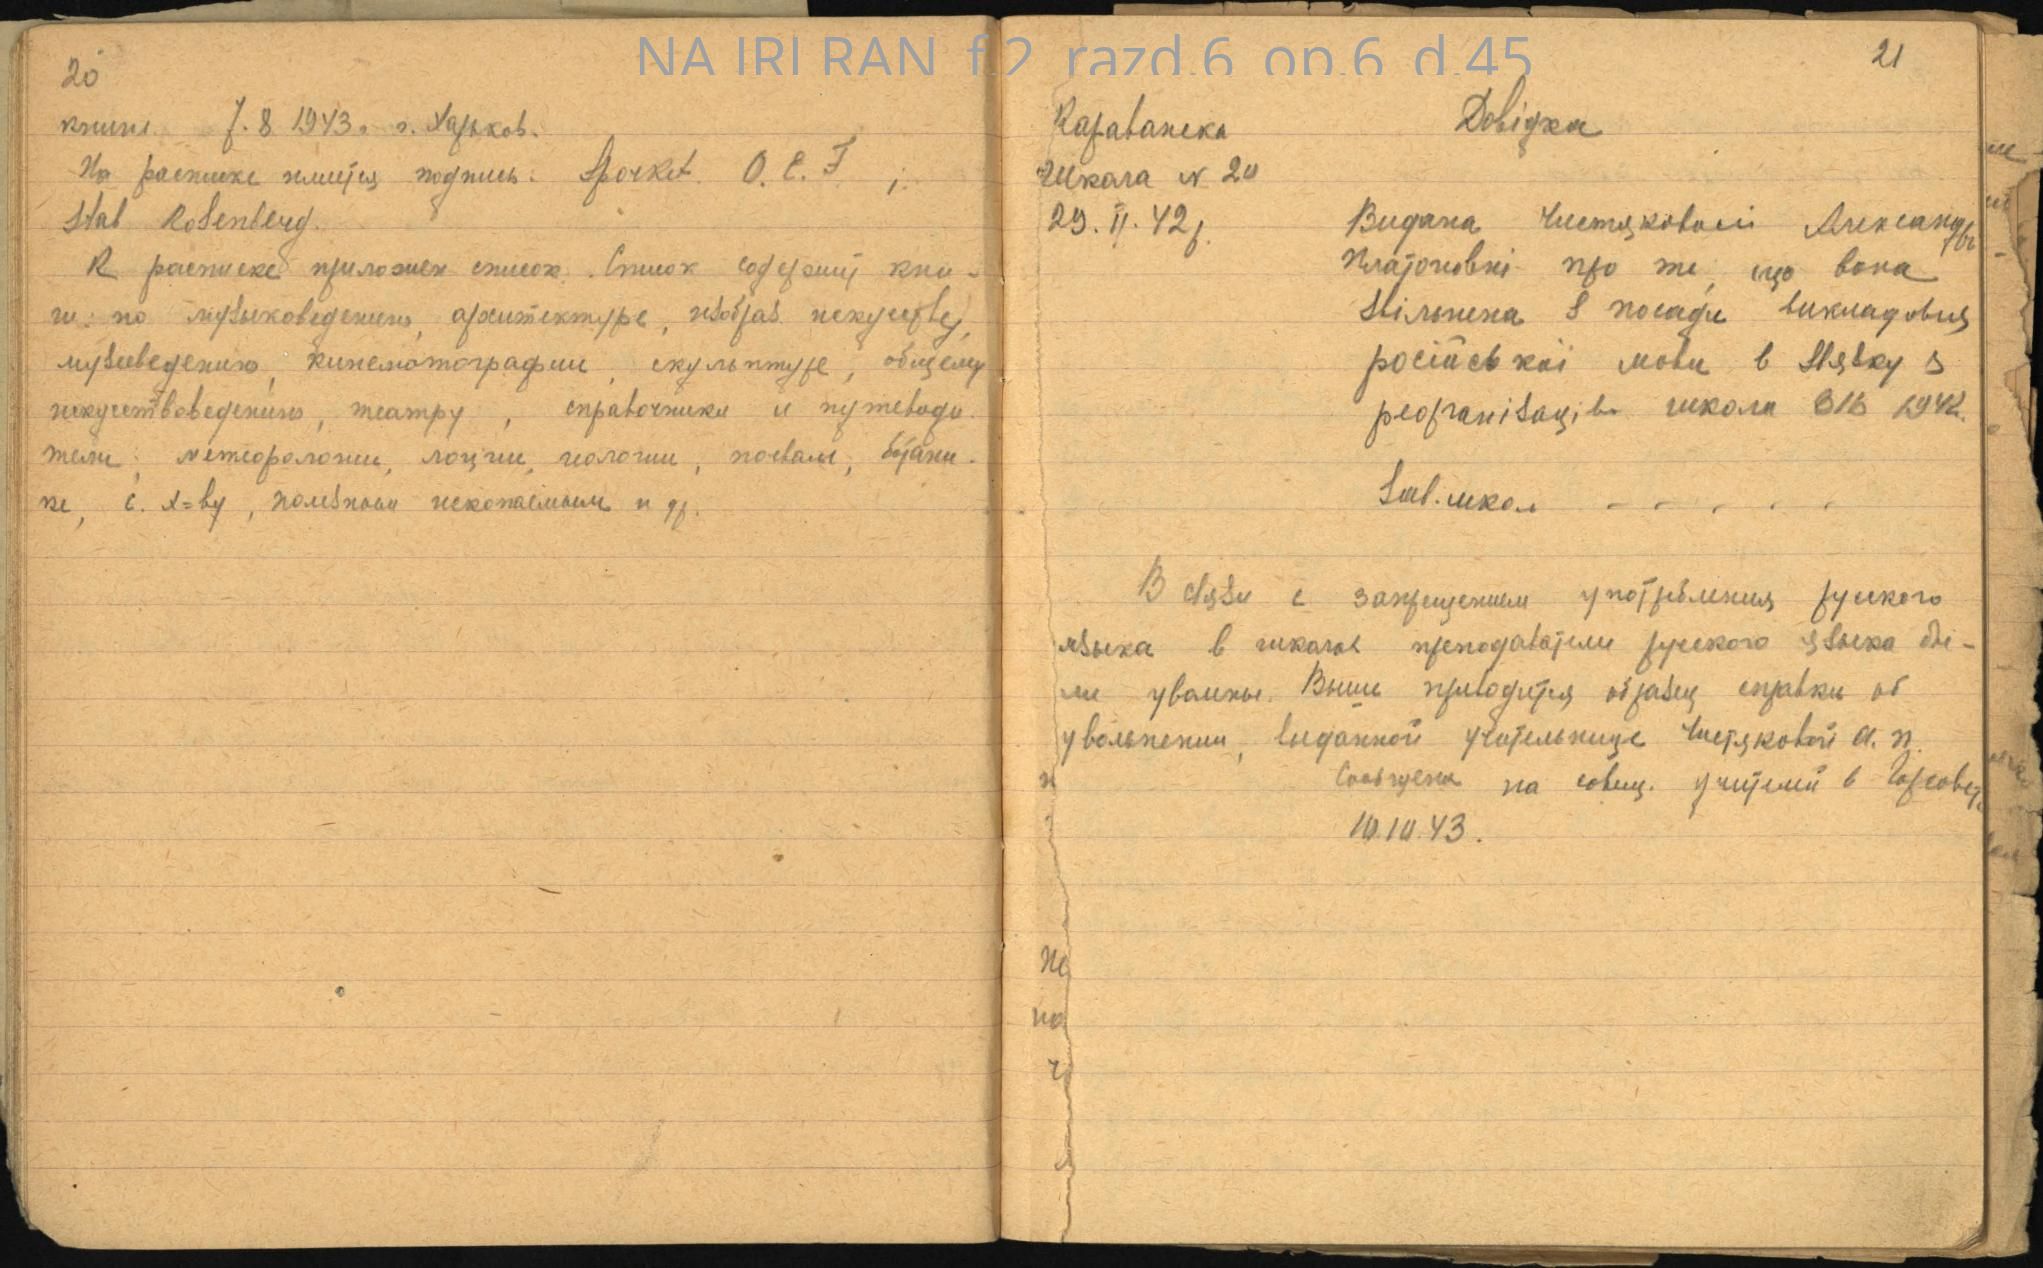 NA IRI RAN f.2 razd.6 op.6 d.45
20
книги. 7.8 1943. г. Харьков.
На расписке имеется подпись: Spocket. O. E. F. ;
Stab Rosenberg.
К расписке приложен список. Список содержит кни-
ги: по музыковедению, архитектуре, изобраз искусству,
музееведению, кинематографии, скульптуре, общему
искусствоведению, театру, справочники и путеводи
тели, метеорологии, лоции, геологии, почвам, ботани-
ке, с. х=ву, полезным ископаемым и др.
21
Караванска
Школа N 20
29. II. 42 р.
Довідка
Видана Чистяковой Александрі
Платоновні про те, що вона
звільнена з посади викладовця
російської мови в звязку з
реорганізацiв школи 1942.
Зав. школ - - - - -
В связи с запрещением употребления русского
языка в школах преподаватели русского языка бы-
ли уволены. Выше приводится образец справки об
увольнении, выданной учительнице Чистяковой А. П.
Сообщена на совещ. учителей в Горсовете
10.10.43.